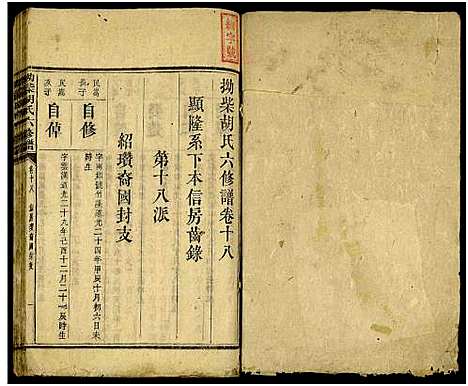 拗柴胡氏六修譜卷十八
顯隆系下本信房齒錄
第十八派
紹瓚裔國封支
民嵩
長子
自修
道光二十四年甲辰十月初六日未
時生
民嵩
次子
自倬
字雲漢道光二十九年己酉十二月二十一辰時生
拗柴胡氏六修譜
卷十八
一